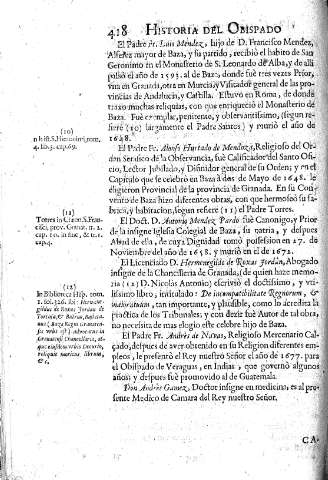 418 HISTORIA DEL OBISPADO
El Padre Fr. Luis Mendez, hijo de D. Francisco Mendez,
Alferez mayor de Baza, y su partido, recibiò el habito de San
Geronimo en el Monasterio de S. Leonardo de Alba, y de allì
passò el año de 1595. al de Baza, donde fuè tres vezes Prior,
vno en Granada, otra en Murcia, y Visitador general de las pro-
vincias de Andalucia, y Castilla. Estuvo en Roma, de donde
traxo muchas reliquias, con que enriqueciò el Monasterio de
Baza. Fuè exemplar, penitente, y observantissimo, (segun refi-
ere (10) largamente el Padre Santos) y muriò el año de
1648.
(10)
4. lib. 3. cap. 69.
El Padre Fr. Alonso Hurtado de Mendoza, Religioso del Or-
den Serafico de la Observancia, fuè Calificador del Santo Ofi-
cio, Lector Jubilado, y Difinidor general de su Orden; y en el
Capitulo que se celebrò en Baza à dos de Mayo de 1648. le
eligieron Provincial de la provincia de Granada. En su Con-
vento de Baza hizo diferentes obras, con que hermoseò su fa-
brica, y habitacion, segun refiere (11) el Padre Torres.
(11)
Torres in Chron. S. Fran-
cisci, prov. Granat. tr. 2.
cap. 10. in fine, & tr. 1.
cap. 4.
El Doct. D. Antonio Mendez Pardo fuè Canonigo, y Prior
de la insigne Iglesia Colegial de Baza, su patria, y despues
Abad de ella, de cuya Dignidad tomò possession en 17. de
Noviembre del año de 1658. y muriò en el de 1672.
El Licenciado D. Hermenegildo de Roxas Jordàn, Abogado
insigne de la Chancilleria de Granada, (de quien haze memo-
ria (12) D. Nicolàs Antonio) escriviò el doctissimo, y vti-
lissimo libro, intitulado: De incompatibilitate Regnorum, &
maioratuum, tan importante, y plausible, como lo acredita la
practica de los Tribunales; y con dezir fuè Autor de tal obra,
no necesita de mas elogio este celebre hijo de Baza.
(12)
In Biblioteca Hisp. tom.
El Padre Fr. Andrès de Navas, Religioso Mercenario Cal-
çado, despues de aver obtenido en su Religion diferentes em-
pleos, le presentò el Rey nuestro Señor el año de 1677. para
el Obispado de Veraguas, en Indias, que governò algunos
años, y despues fuè promovido al de Guatemala.
Don Andrès Gamez, Doctor insigne en medicina, es al pre-
sente Medico de Camara del Rey nuestro Señor.
CA-